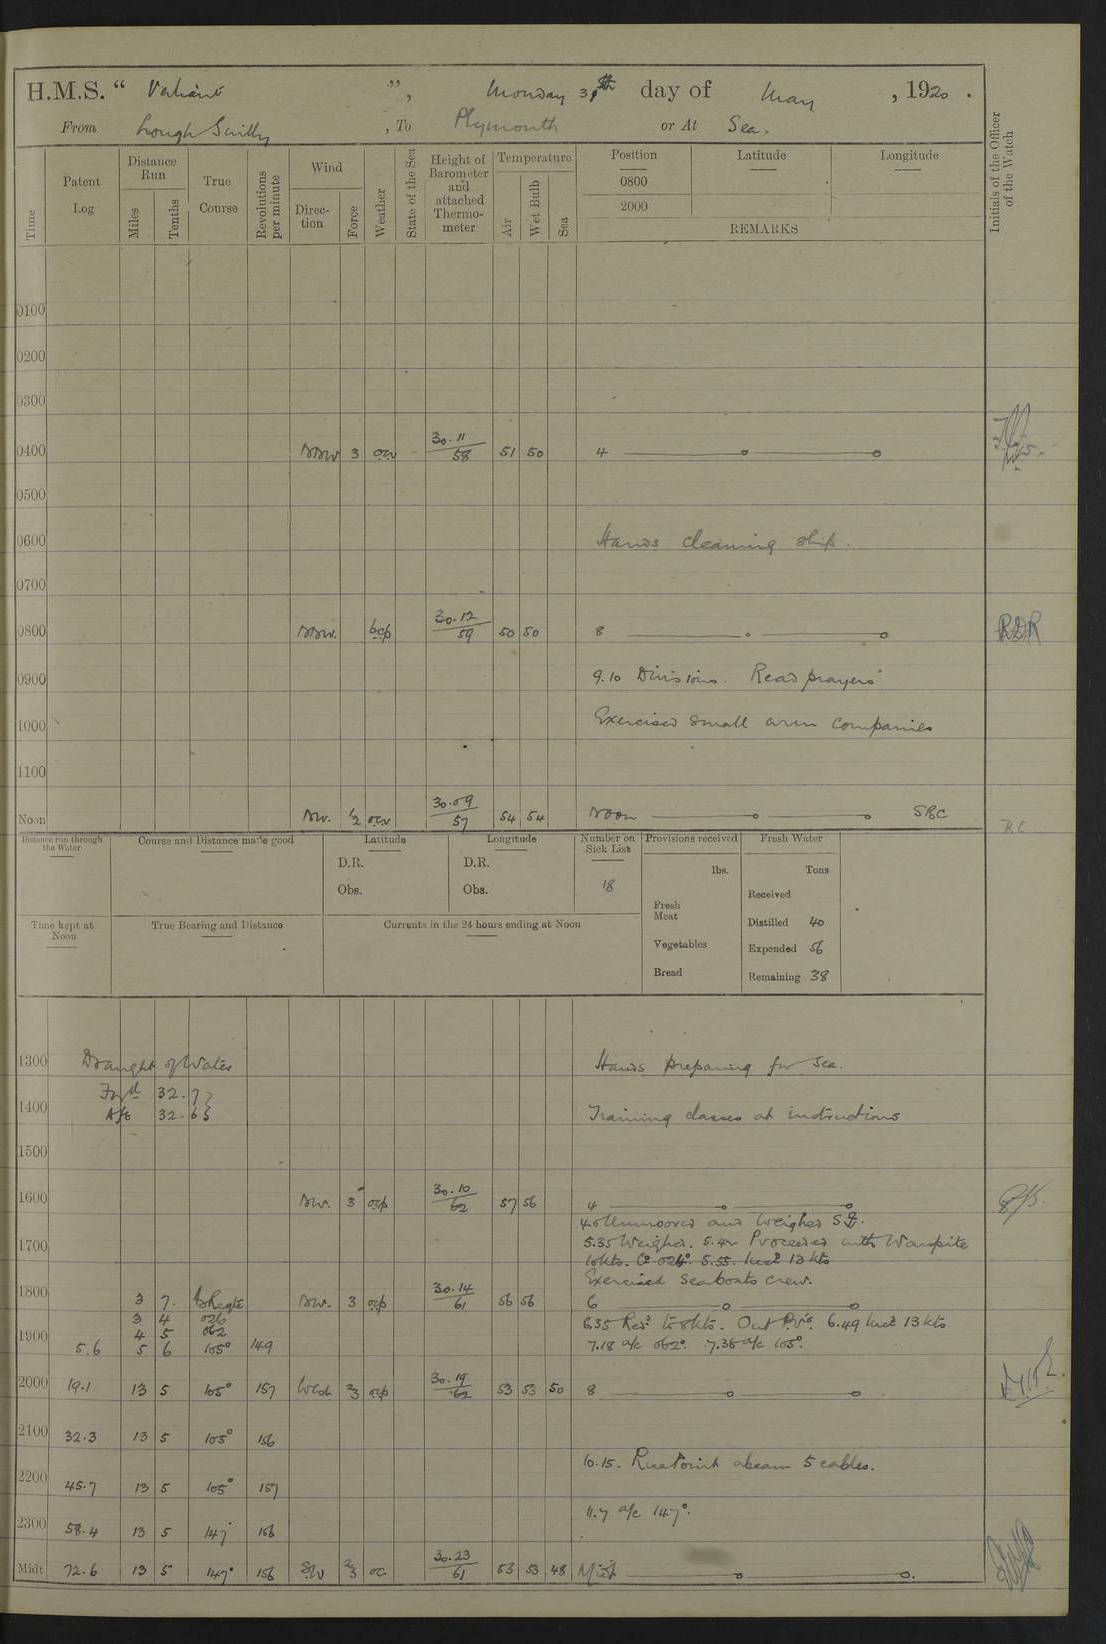 H.M.S. “ Valiant ”, Monday 31st day of May , 1920 .
From Lough Swilly , To Plymouth or At Sea.
Time
Patent Log
Distance Run
Miles
Tenths
True Course
Revolutions per minute
Wind
Direction
Force
Weather
State of the Sea
Height of Barometer and attached Thermometer
Temperature
Air
Wet Bulb
Sea
Position Latitude Longitude
0800
2000
REMARKS
Initials of the Officer of the Watch
0100
0200
0300
0400 NNW 3 30.11 58 51 50 4
0500
0600 Hands cleaning ship.
0700
0800 NNW. bcp 30.12 59 50 50 8 RDR
0900 9.10 Divisions. Read prayers
1000 Exercised small arm companies
1100
Noon NW. 1/2 30.09 57 54 54 Noon
Distance run through the Water
Course and Distance made good
Latitude
D.R.
Obs.
Longitude
D.R.
Obs.
Number on Sick List
18
Provisions received
lbs.
Fresh Meat
Vegetables
Bread
Fresh Water
Tons
Received
Distilled 40
Expended 56
Remaining 38
Time kept at Noon
True Bearing and Distance
Currents in the 24 hours ending at Noon
1300 Draught of Water Hands preparing for sea.
Ford 32.7
1400 Aft 32.6 Training classes at instructions
1500
1600 NW. 3 ocp 30.10 62 57 56 4
Unmoored and weighed
1700 5.35 Weighed. Proceeded with Warspite
10kts. Co 024°. 5.55. Incd 13 kts
Exercised seaboats crew.
1800 3 7. NW. 3 ocp 30.14 61 56 56 6
3 4 026 6.35 Red to 8kts. Out P.Vs. 6.49 Incd 13 kts
1900 4 5 062
5.6 5 6 105° 149 7.18 a/c 062°. 7.36 a/c 105°.
2000 19.1 13 5 105° 157 2/3 ocp 30.19 62 53 53 50 8
2100 32.3 13 5 105° 156
10.15. Rue Point abeam 5 cables.
2200 45.7 13 5 105° 157
11.7 a/c 147°.
2300 58.4 13 5 147 156
Midt 72.6 13 5 147° 156 2/3 oc 30.23 61 53 53 48 Midt